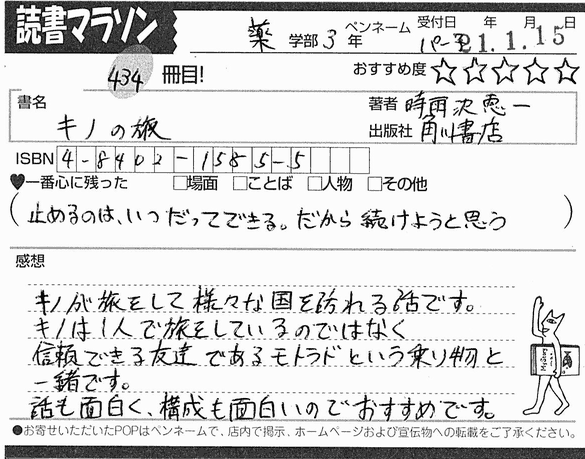 読書マラソン
薬 学部 3 年 ペンネーム パーマ 受付日 年 月 日 21.1.15
434 冊目! おすすめ度 ☆☆☆☆☆
書名 著者 時雨沢恵一
キノの旅 出版社 角川書店
ISBN 4-8402-1585-5
♥一番心に残った □場面 □ことば □人物 □その他
(止めるのは、いつだってできる。だから続けようと思う)
感想
キノが旅をして様々な国を訪れる話です。
キノは1人で旅をしているのではなく
信頼できる友達であるモトラドという乗り物と
一緒です。
話も面白く、構成も面白いのでおすすめです。
●お寄せいただいたPOPはペンネームで、店内で掲示、ホームページおよび宣伝物への転載をご了承ください。